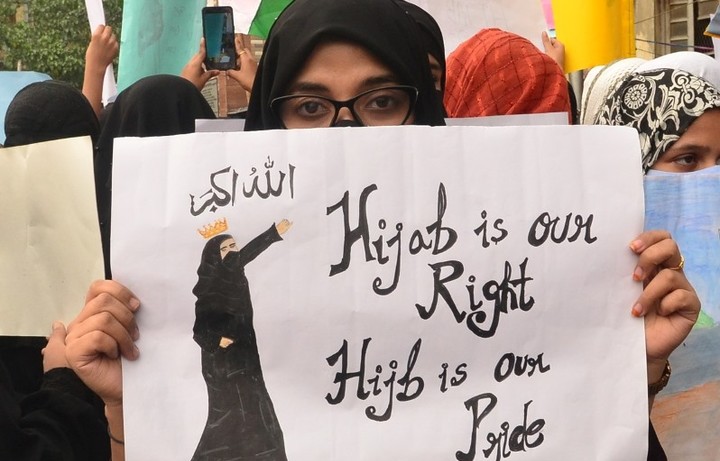 الله اكبر
Hijab is our
Right
Hijb is our
Pride